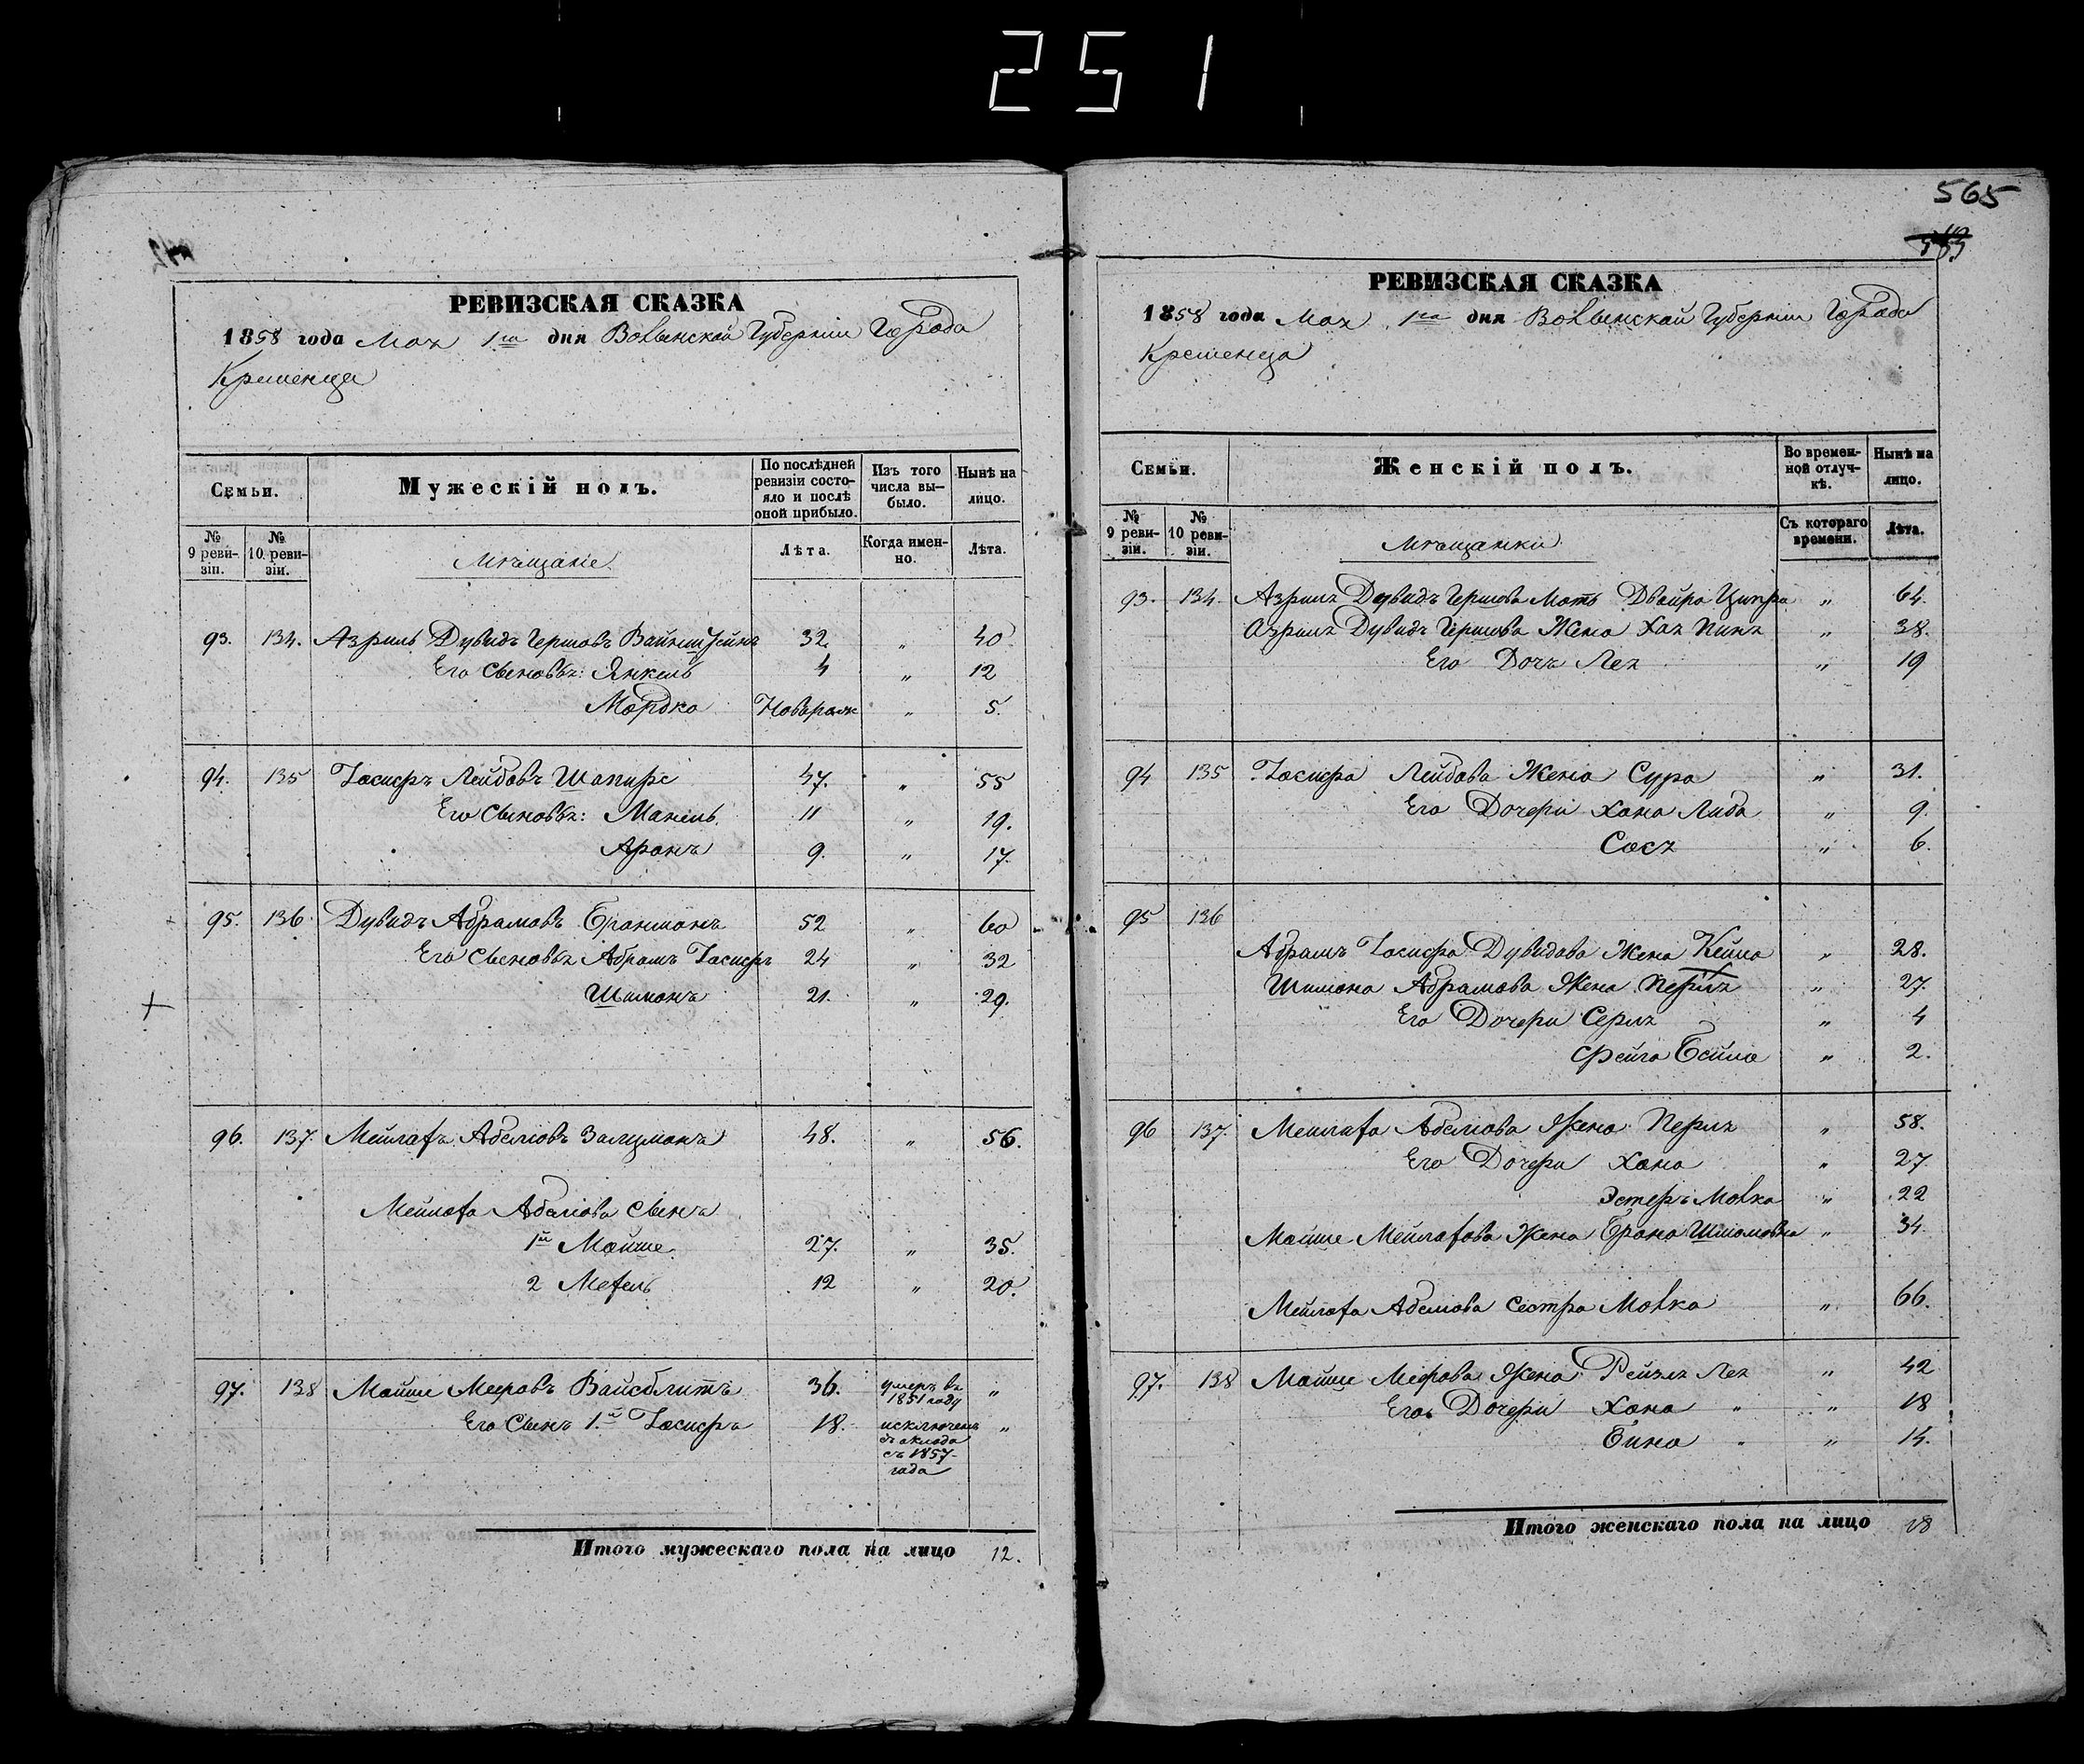 251
РЕВИЗСКАЯ СКАЗКА
1858 года Мая 1го дня Волынской Губерніи Города
Кременца
Семьи.
Мужескій полъ.
По послѣдней ревизіи состояло и послѣ оной прибыло.
Изъ того числа выбыло.
Нынѣ на лицо.
№ 9 ревизіи.
№ 10 ревизіи.
Мѣщаніе
Лѣта.
Когда именно.
Лѣта.
93. 134. Азриль Дувидъ Гершовъ 32 „ 40
Его Сыновья: Янкель 4 „ 12
Мордко Новорож „ 5.
94. 135 Іосифъ Лейбовъ Шапире 47. „ 55
Его Сыновья: Манель 11 „ 19.
Аронъ 9. „ 17.
95. 136 Дувидъ Абрамовъ 52 „ 60
Его Сыновья Абрамъ Іосифъ 24 „ 32
Шимонъ 21. „ 29.
96. 137. Мейлахъ Абелиовъ Залцманъ 48. „ 56.
Мейлаха Абелиова Сынъ
1й Мойше 27. „ 35.
2 Мехель 12 „ 20.
97. 138 Мойше Мееровъ Вайсблитъ 36. умеръ въ 1851 году „
Его Сынъ 1.й Іосифъ 18. исключенъ съ оклада съ 1857 года „
Итого мужескаго пола на лицо 12.
565
РЕВИЗСКАЯ СКАЗКА
1858 года Мая 1го дня Волынской Губерніи Города
Кременца
Семьи.
Женскій полъ.
Во временной отлучкѣ.
Нынѣ на лицо.
№ 9 ревизіи.
№ 10 ревизіи.
Мѣщанки
Съ котораго времени.
Лѣта.
93. 134. Азриля Дувидъ Гершова Мать Двойра Ципра „ 64.
Азриля Дувидъ Гершова Жена Хая Пиня „ 38.
Его Дочь Лея „ 19
94 135 Іосифа Лейбова Жена Сура „ 31.
Его Дочери Хана Либа „ 9.
Сося „ 6.
95 136
Абрамъ Іосифа Дувидова Жена Кейла „ 28.
Шимона Абрамова Жена Перля „ 27.
Его Дочери Серля „ 4
Фейга Бейла „ 2.
96 137. Мейлаха Абелиова Жена Перля „ 58.
Его Дочери Хана „ 27.
Эстеръ Молка „ 22
Мойше Мейлахова Жена Брана „ 34
Мейлаха Абелиова Сестра Молка „ 66.
97. 138 Мойше Меерова Жена Рейзля Лея „ 42
Его Дочери Хана „ „ 18
Ейна „ „ 14.
Итого женскаго пола на лицо 18